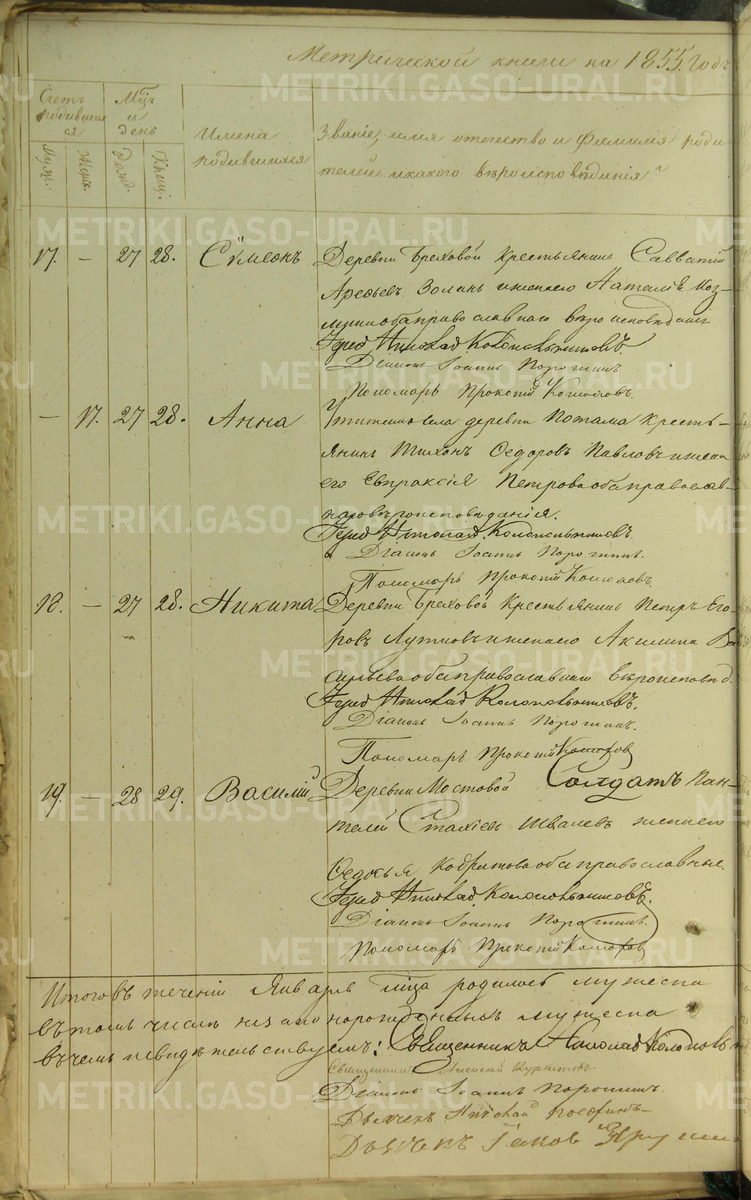 Метрической книги на 1855. Годъ
Счетъ родившихся
Муж.
Жен.
Мцъ и день
Рожд.
Крещ.
Имена родившихся
Званіе, имя отечество и фамилія роди
телей и какого вѣроисповѣданія.
17. — 27 28. Сѵмеонъ Деревни Бреховой крестьянинъ Савватій
Арефьевъ Золинъ и жена его Наталья Коз-
мина оба православнаго вѣроисповѣданія
Іерей Николай Колокольниковъ.
Діаконъ Іоаннъ Порошинъ
Пономарь Прокопій
— 17. 27 28. Анна деревни Потама кресть-
янинъ Тихонъ Ѳедоровъ Павловъ и жена
его Евпраксія Петрова оба православ-
наго вѣроисповѣданія.
Іерей Николай Колокольниковъ.
Діаконъ Іоаннъ Порошинъ.
Пономарь Прокопій
18. — 27 28. Никита Деревни Бреховой крестьянинъ Петръ Его-
ровъ и жена его Акилина Ва
сильева оба православнаго вѣроисповѣд.
Іерей Николай Колокольниковъ.
Діаконъ Іоаннъ Порошинъ.
Пономарь Прокопій
19. — 28 29. Василій Деревни Мостовой Солдатъ Пан-
телей Стахіевъ Швалевъ жена его
Ѳедосья оба православные.
Іерей Николай Колокольниковъ.
Діаконъ Іоаннъ Порошинъ.
Пономарь Прокопій
Итого въ теченіи Января мца родилось мужеска
въ томъ числѣ незаконорожденныхъ мужеска
въ чемъ и свидѣтельствуемъ: Священникъ Николай Колоколь
Священникъ
Діаконъ Іоаннъ Порошинъ.
Дьячекъ Николай
Дьячекъ Іаковъ
METRIKI.GASO-URAL.RU